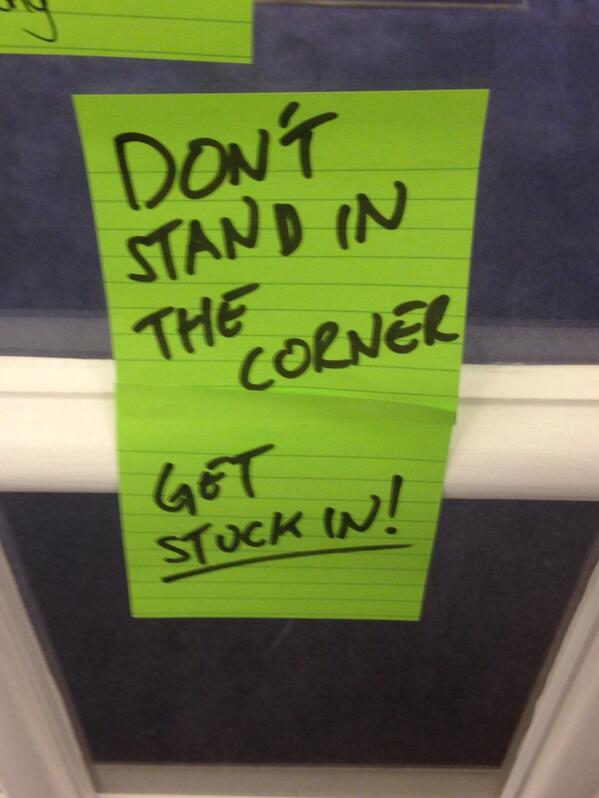 DON'T
STAND IN
THE
CORNER
GET
STUCK IN!